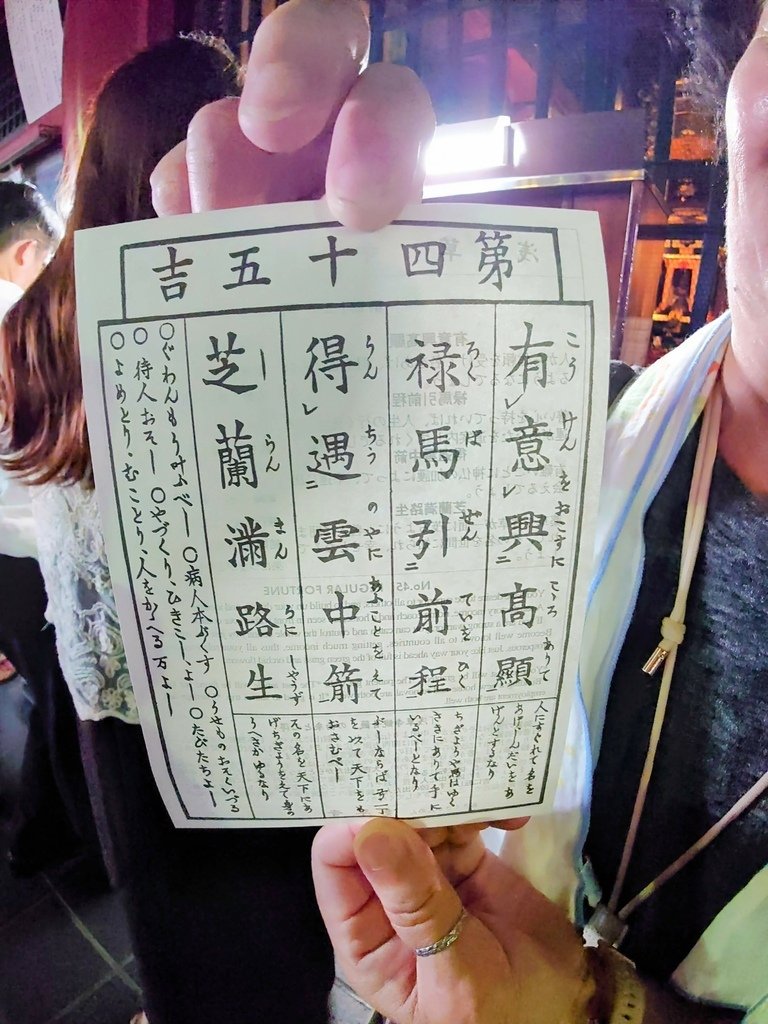 第四十五吉
有意興高顯
こうけんをおこすにこころありて
禄馬引前程
ろくばぜんていをひく
得遇雲中箭
うんちうのやにあふことをえて
芝蘭満路生
しらんまんろにしやうず
人にすぐれて名を
あげしんだいをあ
げんとするなり
ちぎようや馬はゆく
さきにありて手に
いるべしとなり
ぶしならば弓一丁
を以て天下をも
おさむべし
元の名を天下にあ
げちぎようをえて身の
うへさかゆるなり
○ぐわんもう叶ふべし ○病人本ぷくす ○うせものおそくいづる
○待人おそし ○やづくり、ひきこし、よし ○たびたちよし
○よめとり、むことり、人をかゝへる万よし